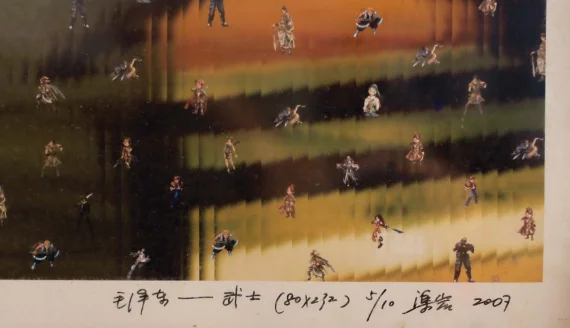 毛泽东 —— 武士 (80X232) 5/10 2007